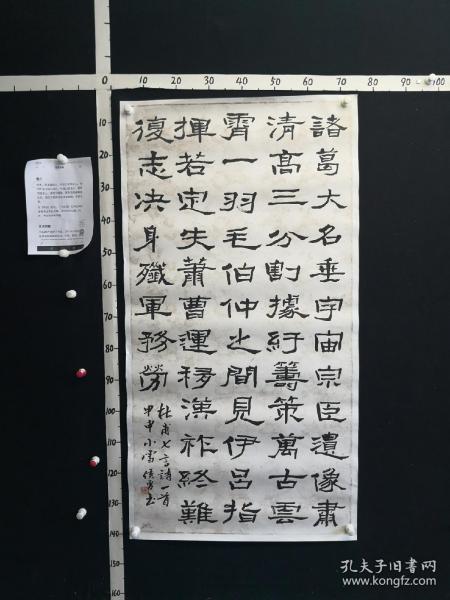 0 10 20 30 40 50 60 70 80 90 100
10
20
30
40
50
60
70
80
90
100
110
120
130
140
150
160
諸葛大名垂宇宙宗臣遺像肅
清髙三分割據紆籌策萬古雲
霄一羽毛伯仲之間見伊呂指
揮若定失蕭曹運移漢祚終難
復志決身殲軍務勞
杜甫七言詩一首
甲申小雪
孔夫子旧书网
www.kongfz.com